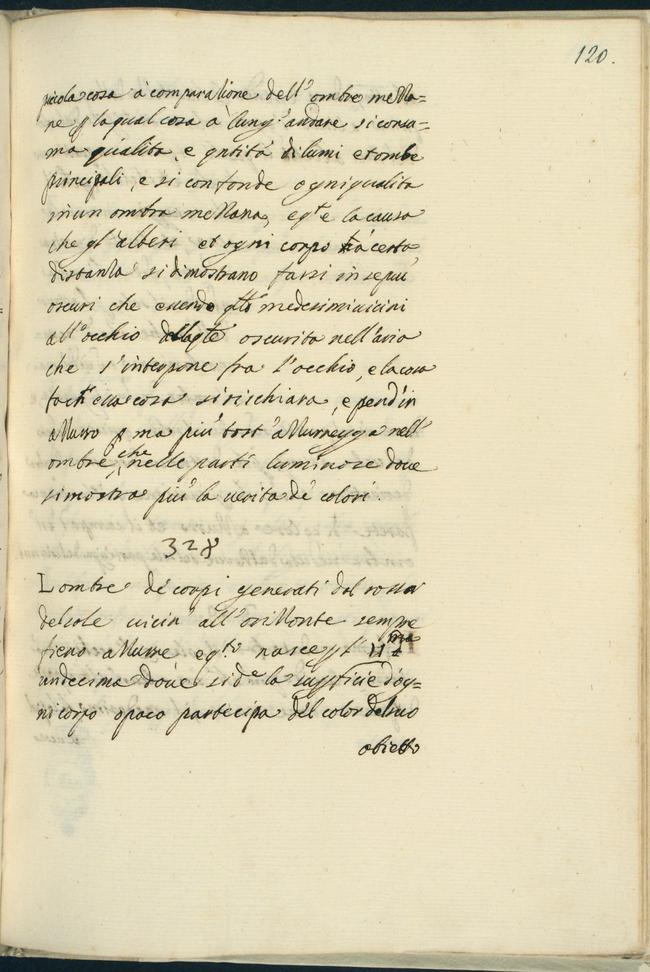 120.
piccola cosa à comparatione dell'ombre mezza=
ne p la qual cosa à lung' andare si consu=
ma qualita, e qntità di lumi et ombre
principali, e si confonde ogni qualita
in un ombra mezzana, e qto e la causa
che gl'alberi et ogni corpo à certa
distanza si dimostrano farsi in se piu
oscuri che essendo qlli medesimi vicini
all'occhio dalla qle oscurita nell'aria
che s'interpone fra l'occhio, e la cosa
fa ch' essa cosa si rischiara, e pend' in
azzurro ma più tost' azzurreggia nell'
ombre, che nelle parti luminose doue
si mostra più la uerita de colori.
328
L ombre de corpi generati dal rossor
del sole uicin' all'orizzonte sempre
fieno azzurre e qto nasce p l' 11ma
undecima doue si de la suptficie d'og=
ni corpo opaco partecipa del color del suo
obietto